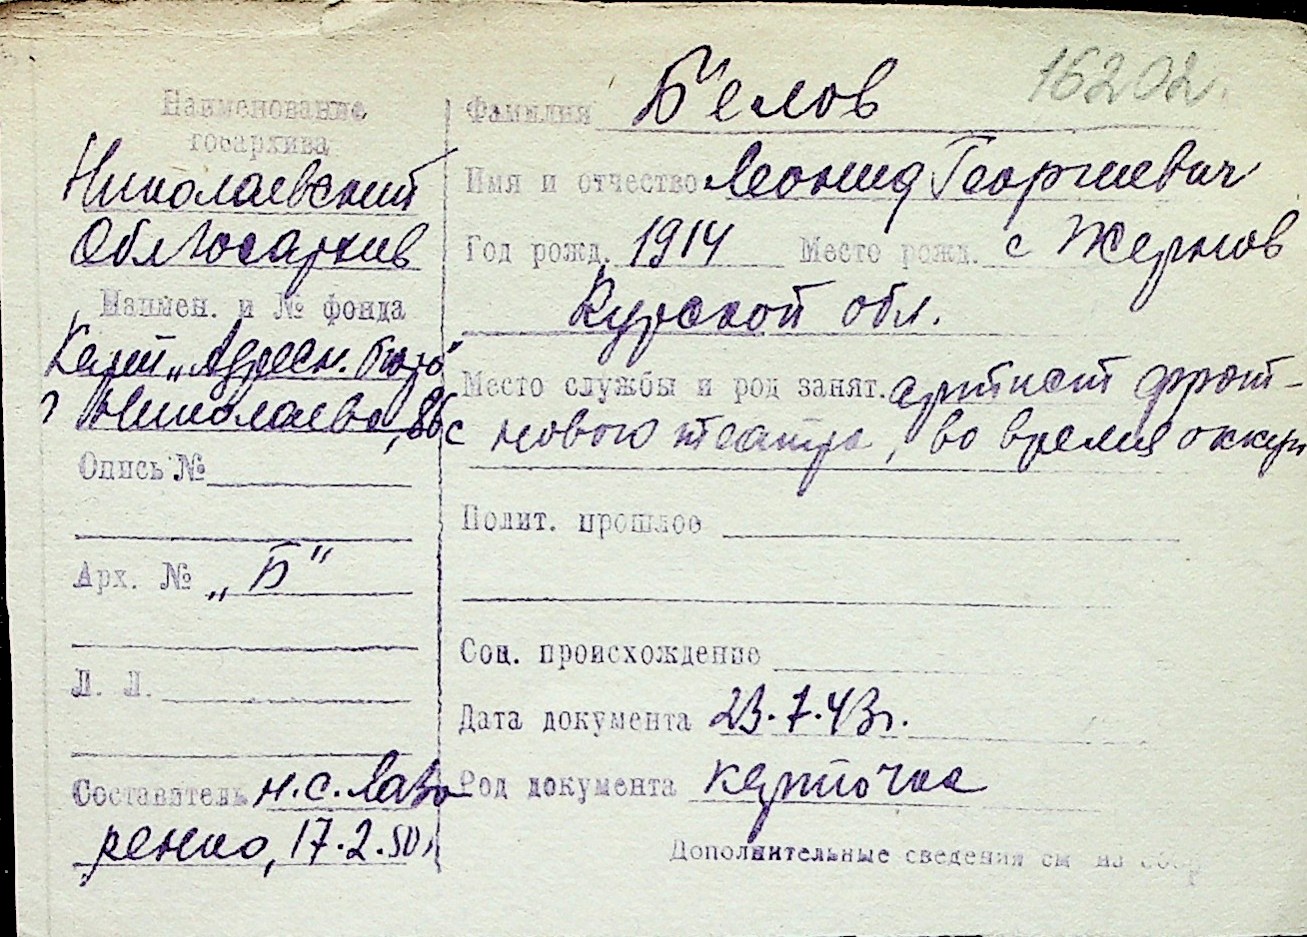 16202.
Наименование
госархива
Николаевский
Облгосархив
Наимен. и № фонда
Адресн. бюро"
г Николаева,
Опись №
Арх. № „Б"
Л. Л.
Составитель Н.С. Лаво
ренко, 17.2.50г
Фамилия Белов
Имя и отчество Леонид Георгиевич
Год рожд. 1914 Место рожд. с Жернов
Курской обл.
Место службы и род занят. артист фронт-
нового театра, во время оккуп
Полит. прошлое
Соц. происхождение
Дата документа 23.7.43г.
Род документа карточка
Дополнительные сведения см на обор